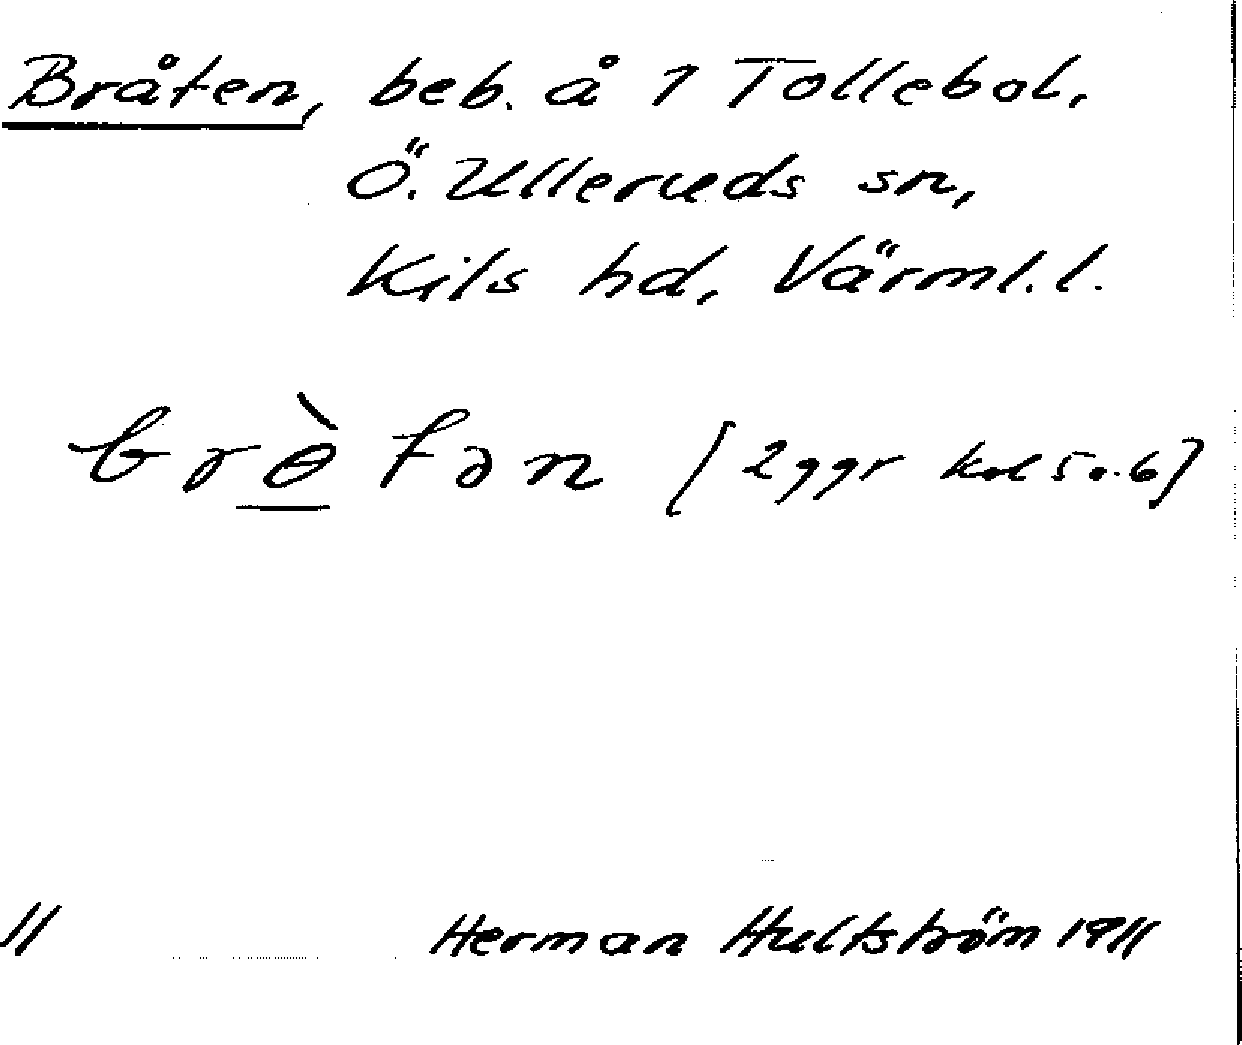 Bråten, beb. å 1 Tollebol,
Ö. Ulleruds sn,
Kils hd, Värml. l.
brɵ̀tən [2ggr kol 5 o. 6]
11 Herman Hultström 1911